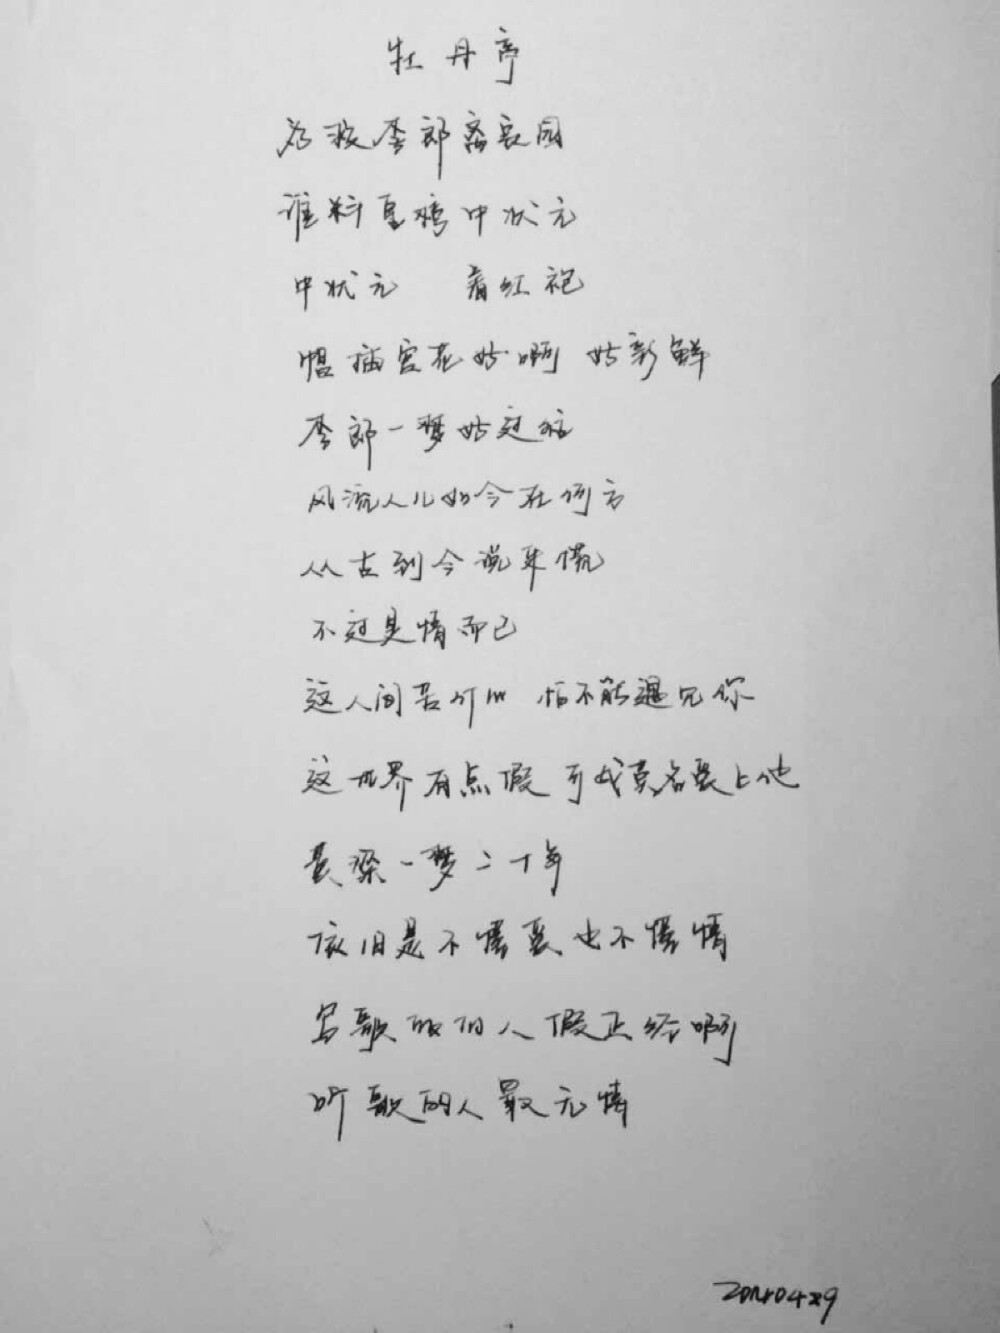 牡丹亭
为救李郎离家园
谁料皇榜中状元
中状元 着红袍
帽插宫花好啊 好新鲜
李郎一梦好过往
风流人儿如今在何方
从古到今说来慌
不过是情而已
这人间苦 怕不能遇见你
这世界有点假 可我莫名爱上他
黄粱一梦二十年
依旧是不懂爱也不懂情
写歌的人假正经啊
听歌的人最无情